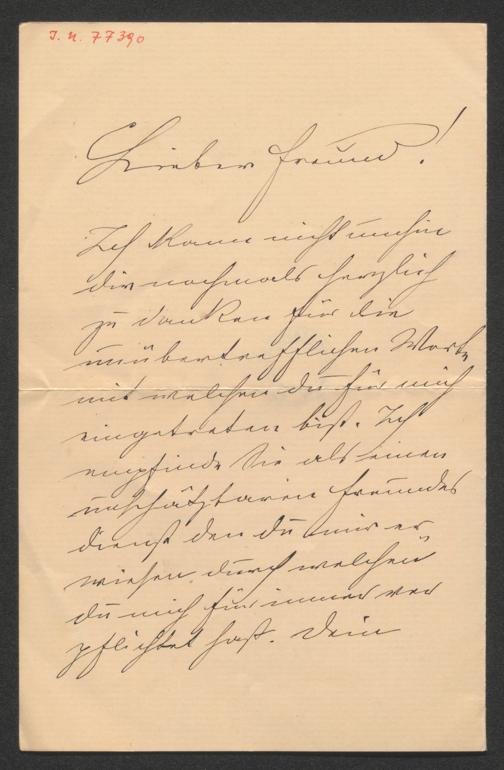 I. N. 77390
Lieber Freund!
Ich kann nicht umhin
dir nochmals herzlich
zu danken für die
unübertrefflichen Worte,
mit welchen du für mich
eingetreten bist. Ich
empfinde sie als einen
unschätzbaren Freundes
dienst den du mir er
wiesen, durch welchen
du mich für immer ver
pflichtet hast. Dein